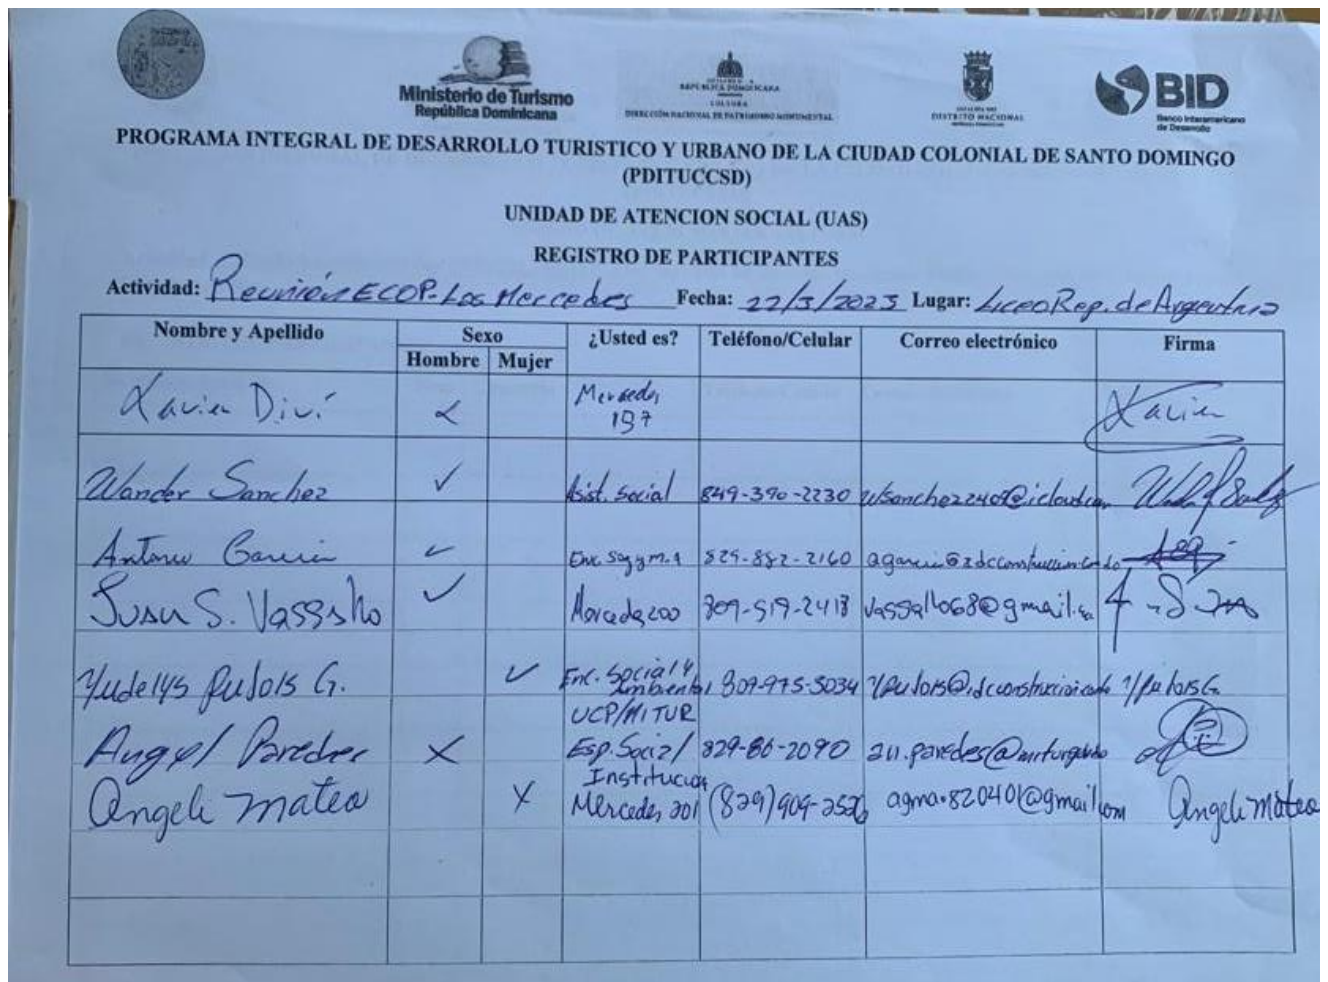 Ministerio de Turismo
República Dominicana
REPÚBLICA DOMINICANA
CULTURA
DIRECCIÓN NACIONAL DE PATRIMONIO MONUMENTAL
DISTRITO NACIONAL
BID
Banco Interamericano
de Desarrollo
PROGRAMA INTEGRAL DE DESARROLLO TURISTICO Y URBANO DE LA CIUDAD COLONIAL DE SANTO DOMINGO
(PDITUCCSD)
UNIDAD DE ATENCION SOCIAL (UAS)
REGISTRO DE PARTICIPANTES
Actividad: Reunión ECOP-Las Mercedes Fecha: 22/3/2023 Lugar: Liceo Rep. de Argentina
Nombre y Apellido Sexo ¿Usted es? Teléfono/Celular Correo electrónico Firma
Hombre Mujer
Xavier Diví Mercedes 197 Xavier
Wander Sanchez Asist. Social 849-390-2230 wsanchez2409@icloud.com
Antonio Garcia Enc. 829-882-2160
Juan S. Vassallo Mercedes 200 809-519-2413 vassallo68@gmail.co
Yudelys Pujols G. Enc. Social y Ambiental 809-975-5034 YPujols G.
UCP/MITUR
Angel Paredes Esp. Social 829-86-2090
Institucion
Angeli Mateo Mercedes 201 (829)909-2526 agma.820401@gmail.com Angeli Mateo